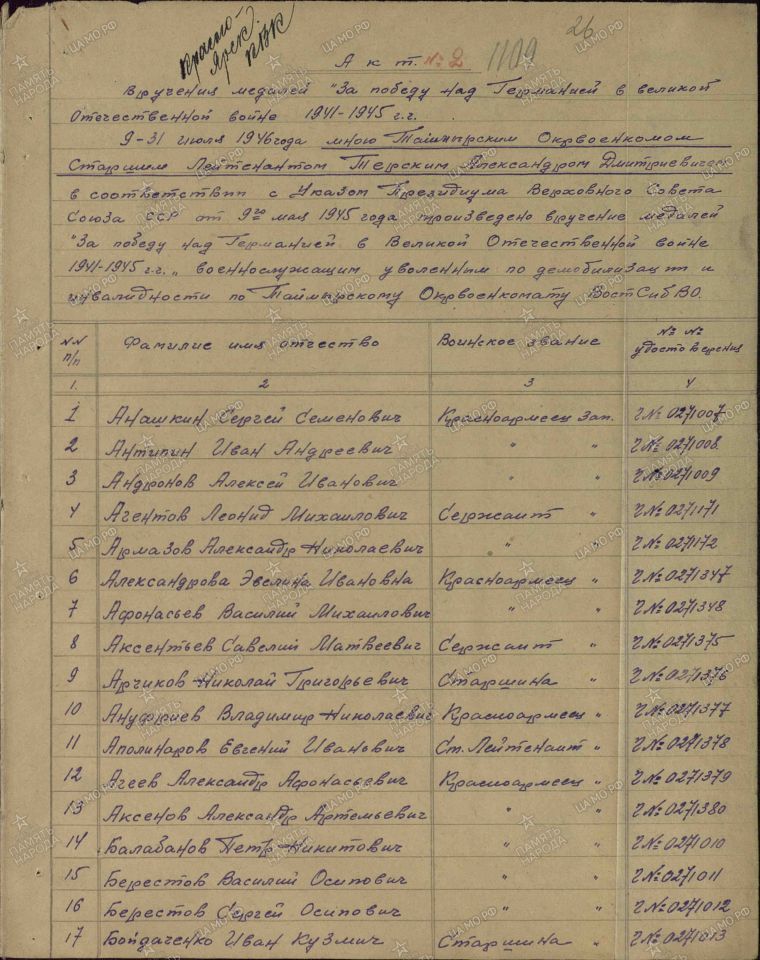 Красно
ярск.
КВК
26
Акт. № 2 1109
Вручения медалей "За победу над Германией в великой
Отечественной войне 1941-1945 г.г.
9-31 июля 1946 года мною Таймырским Окрвоенкомом
Старшим Лейтенантом Терским Александром Дмитриевичем
в соответствии с Указом Президиума Верховного Совета
Союза ССР от 9го мая 1945 года произведено вручение медалей
"За победу над Германией в Великой Отечественной войне
1941-1945 г.г." военнослужащим уволенным по демобилизации и
инвалидности по Таймырскому Окрвоенкомату ВостСибВО.
NN п/п Фамилие имя отчество Воинское звание №№ удостоверения
1. 2 3 4
1 Анашкин Сергей Семенович Красноармеец Зап. Г№ 0271007
2 Антипин Иван Андреевич " " Г№ 0271008
3 Андронов Алексей Иванович " " Г№ 0271009
4 Агентов Леонид Михаилович Сержант " Г№ 0271171
5 Армазов Александр Николаевич " " Г№ 0271172
6 Александрова Эвелина Ивановна Красноармеец " Г№ 0271347
7 Афонасьев Василий Михаилович " " Г№ 0271348
8 Аксентьев Савелий Матвеевич Сержант " Г№ 0271375
9 Арчиков Николай Григорьевич Старшина " Г№ 0271376
10 Ануфриев Владимир Николаевич Красноармеец " Г№ 0271377
11 Аполинаров Евгений Иванович Ст. Лейтенант " Г№ 0271378
12 Агеев Александр Афонасьевич Красноармеец " Г№ 0271379
13 Аксенов Александр Артемьевич " " Г№ 0271380
14 Балабанов Петр Никитович " " Г№ 0271010
15 Берестов Василий Осипович " " Г№ 0271011
16 Берестов Сергей Осипович " " Г№ 0271012
17 Бойдаченко Иван Кузмич Старшина " Г№ 0271013